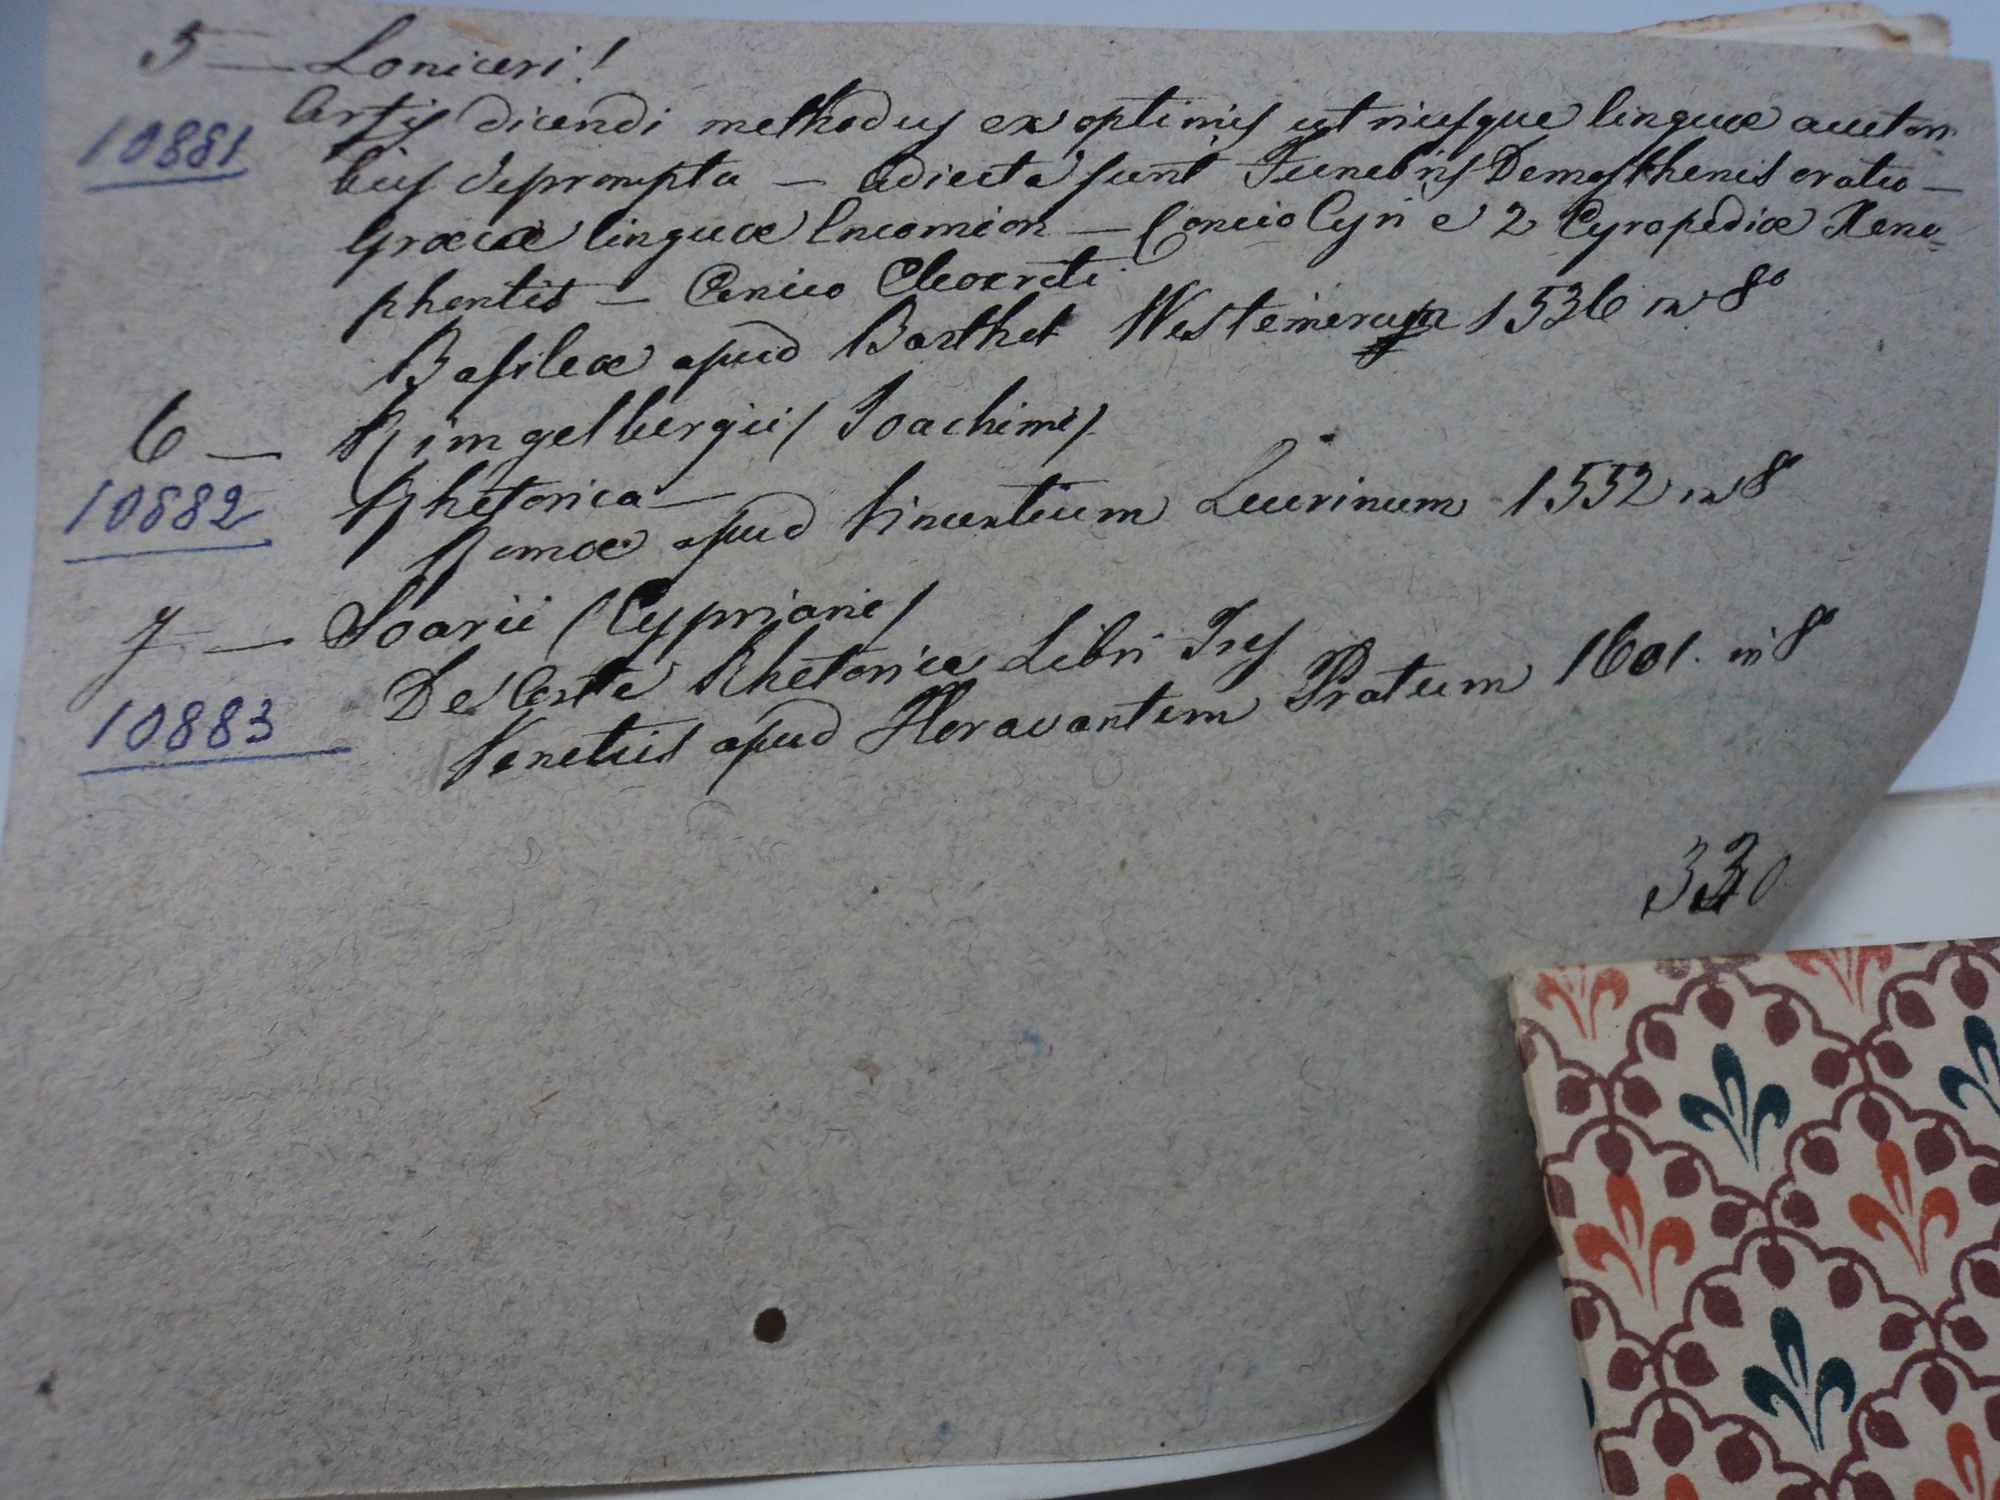 5 — Loniceri!
10881
Artis dicendi methodus ex optimis utriusque linguæ auctori-
bus deprompta — adiecta sunt Funebris Demosthenis oratio —
Græcæ linguæ Encomion — Concio Cyri e 2 Cyropediæ Xeno=
phontis —
Basileæ apud Barthol Westemerum 1536 in 8º
6 — Rimgelbergii (Joachimi)
10882
Rhetorica —
Romæ apud Vincentium Lucrinum 1552 in 8º
7 — Soarii (Cypriani)
10883
De Arte Rhetorica Libri Tres
Venetiis apud Floravantem Pratum 1601. in 8º
330